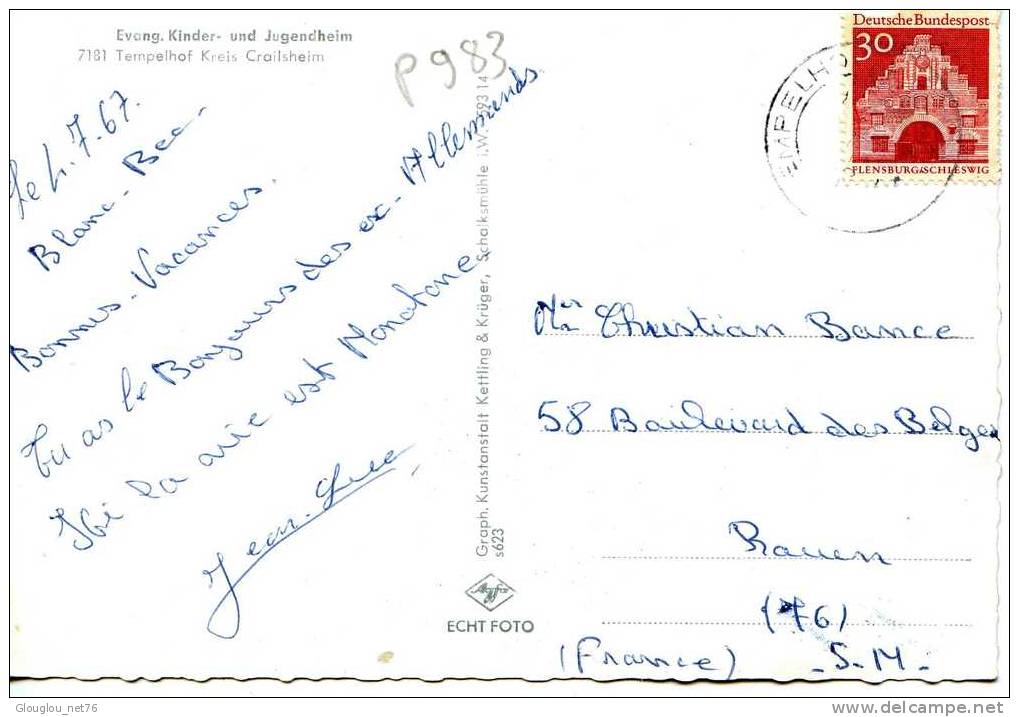 Evang. Kinder- und Jugendheim
7181 Tempelhof Kreis Crailsheim
P983
Le 4.7.67.
Blanc-Bec-
Bonnes-Vacances.
Tu as le Bonjours des ex-Allemands
Ici la vie est Monotone
Jean-Luc
Graph. Kunstanstalt Kettling & Krüger, Schalksmühle i.W. 314
s623
Agfa
ECHT FOTO
Deutsche Bundespost
30
FLENSBURG/SCHLESWIG
EMPELHO
Mr Christian Bance
58 Boulevard des Belges
Rouen
(76)
(France) -S-M-
Glouglou_net76
delcampe.net